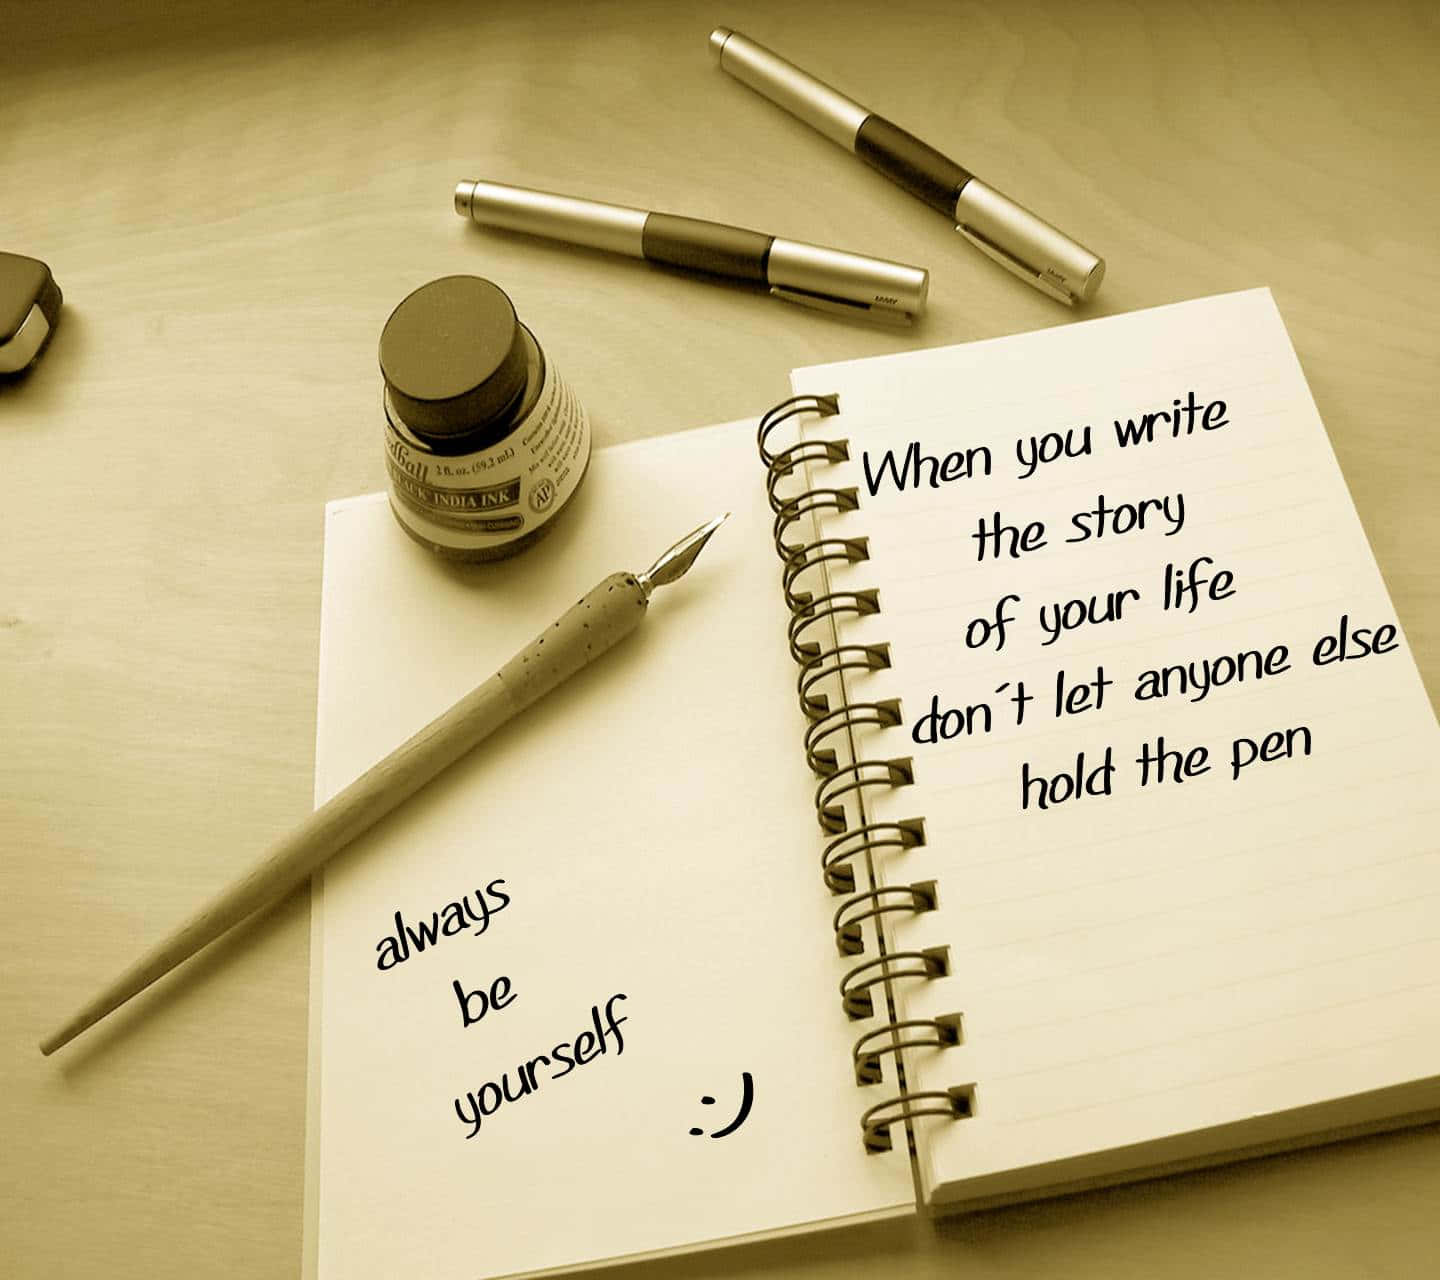 LAMY
LAMY
2 fl. oz. (59.2 ml.)
INDIA INK
AP
When you write
the story
of your life
don´t let anyone else
hold the pen
always
be
yourself
:)